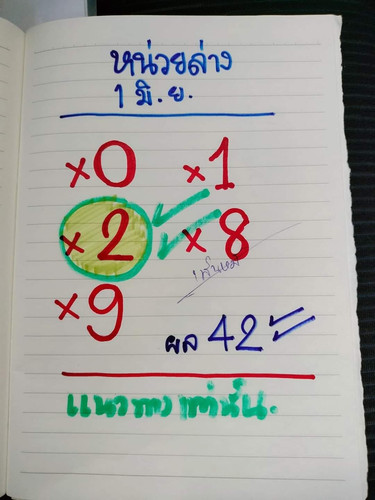 หน่วยล่าง
1 มิ.ย.
×0 ×1
×2 ×8
×9
ผล 42
แนวทางเท่านั้น.